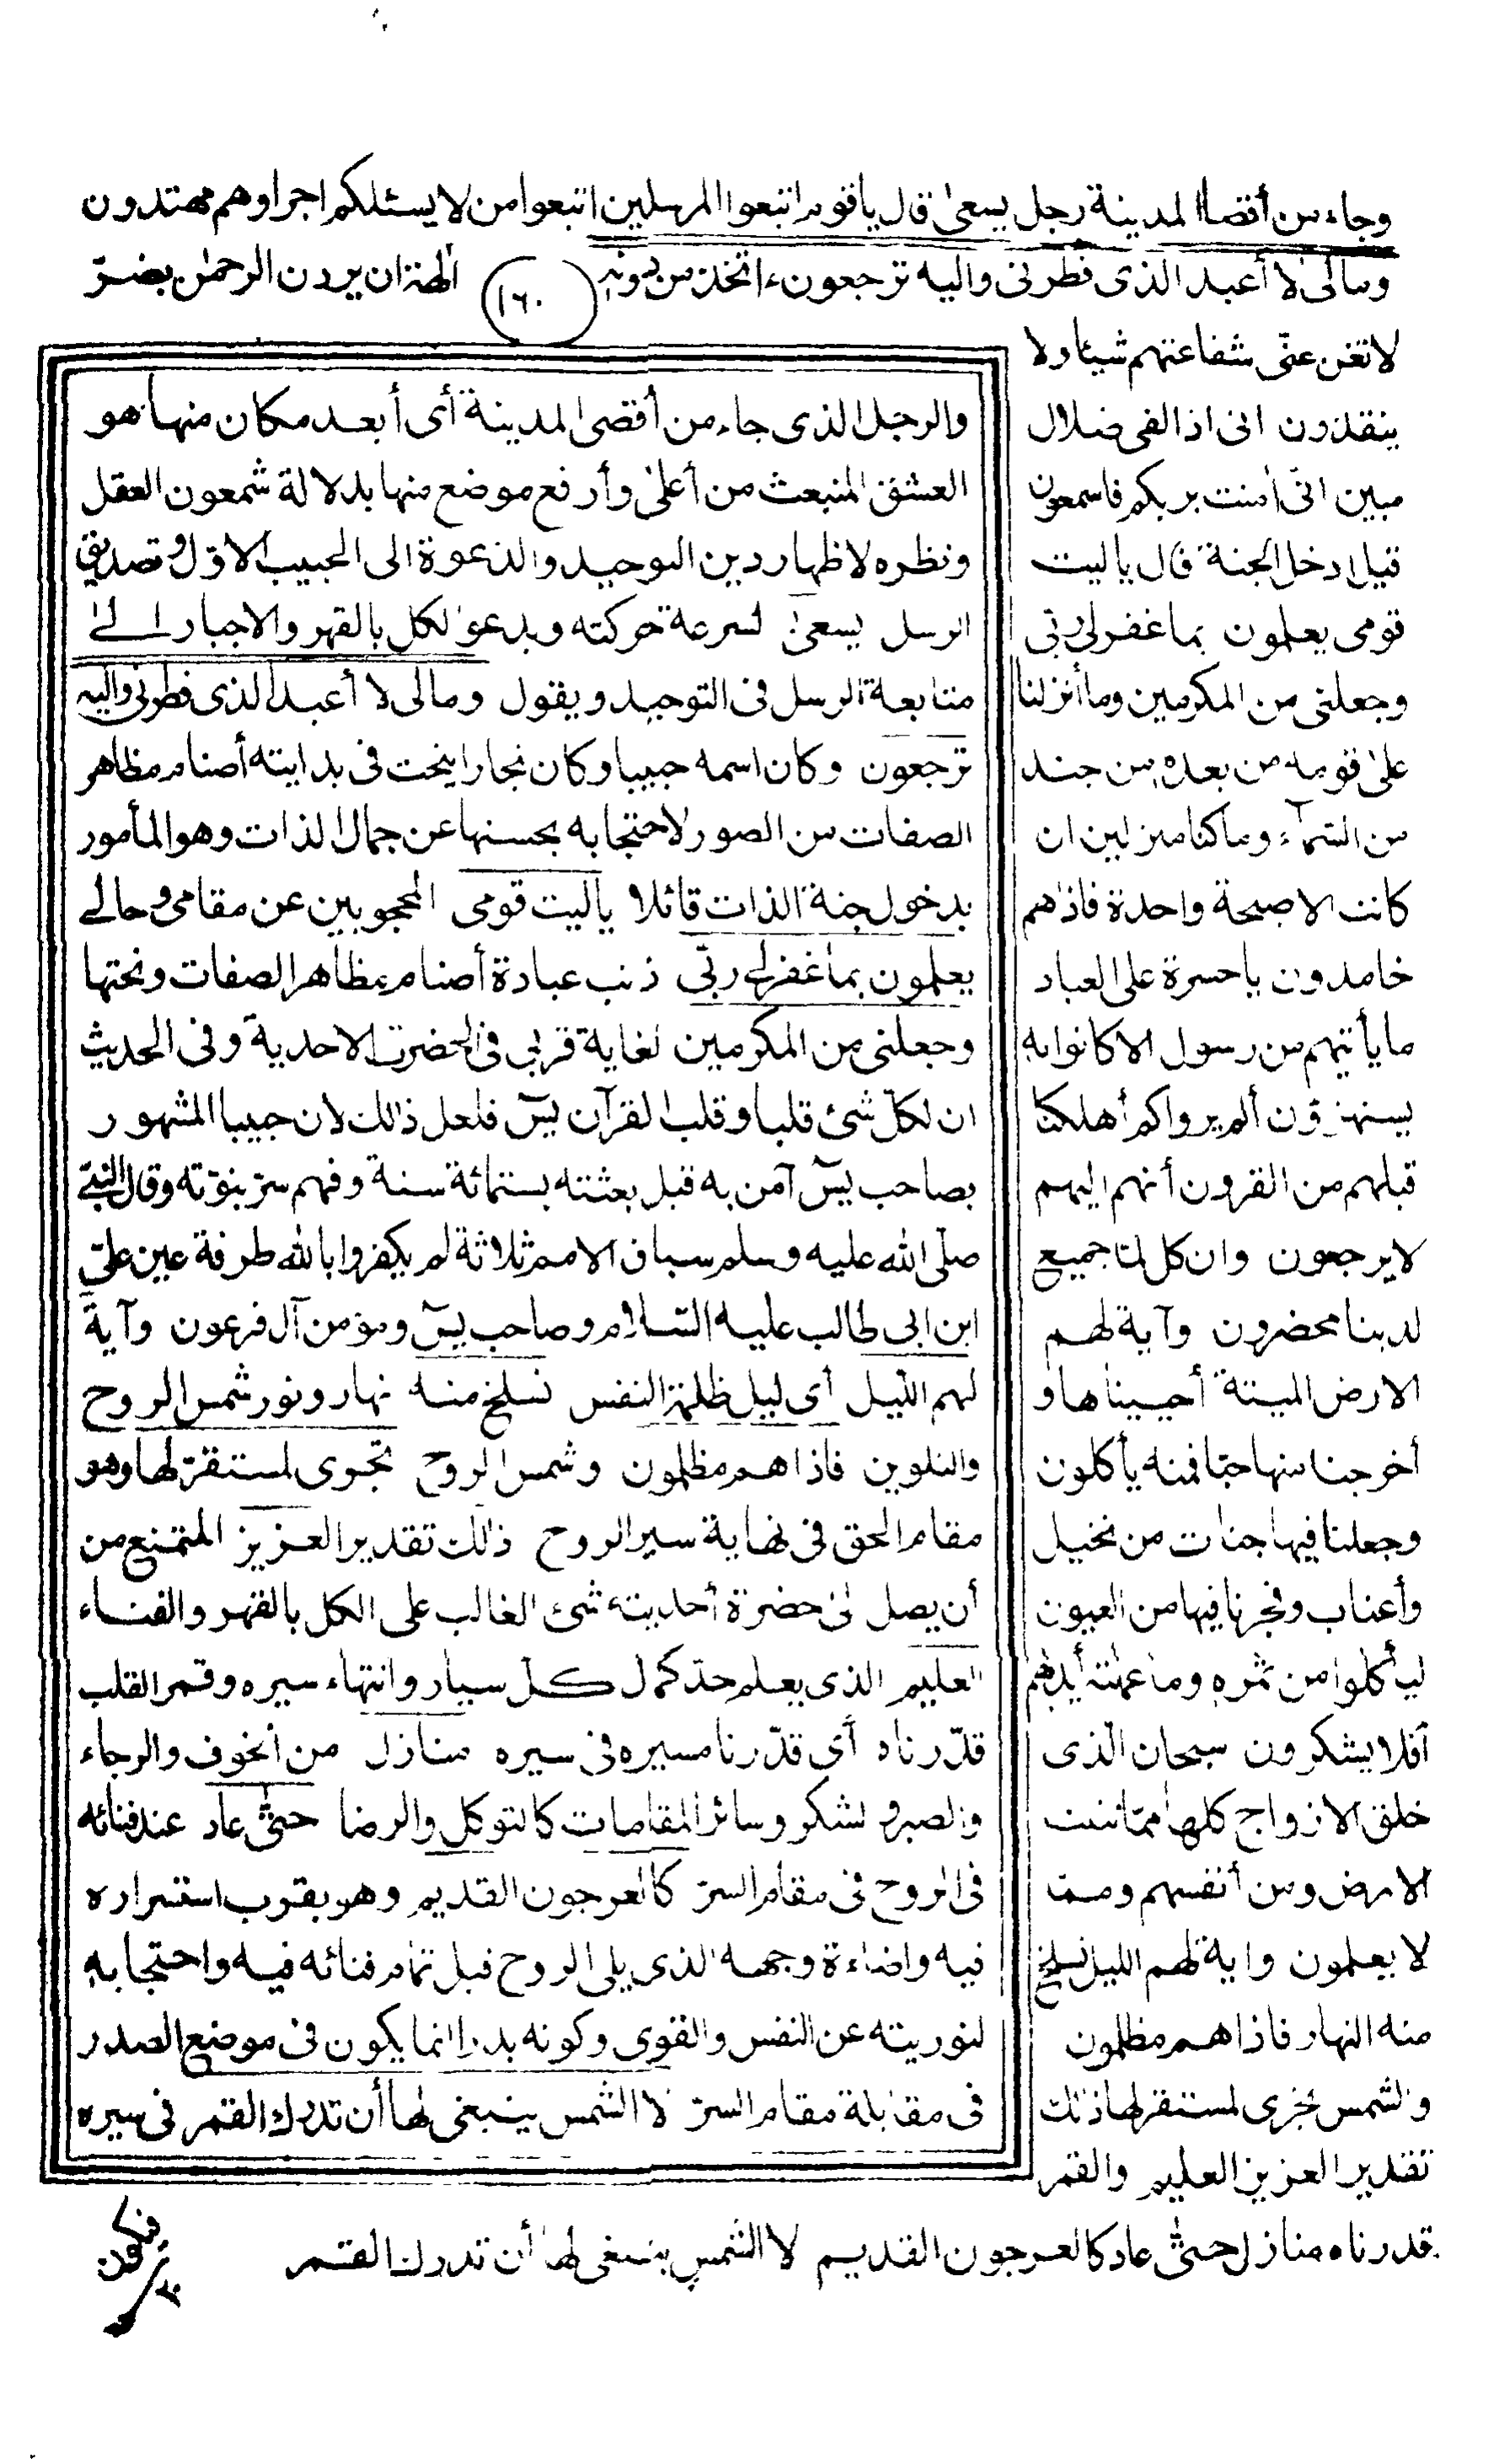 وجاء من أقصا المدينة رجل يسعى قال يا قوم اتبعوا المرسلين اتبعوا من لا يسئلكم اجرا وهم مهتدون
ومالى لا أعبد الذى فطرنى واليه ترجعون ءاتخذ من دونه آلهة ان يردن الرحمن بضرّ
١٦٠
لا تغن عنّى شفاعتهم شيئا ولا
ينقذون انى اذا لفى ضلال
مبين انّى آمنت بربكم فاسمعون
قيل ادخل الجنة قال ياليت
قومى يعلمون بما غفر لى ربّى
وجعلنى من المكرمين وما أنزلنا
على قومه من بعده من جند
من السّماء وما كنا منزلين ان
كانت الا صيحة واحدة فاذا هم
خامدون ياحسرة على العباد
ما يأتيهم من رسول الا كانوا به
يستهزؤن ألم يروا كم أهلكنا
قبلهم من القرون أنهم اليهم
لا يرجعون وان كل لمّا جميع
لدينا محضرون وآية لهم
الارض الميتة أحييناها و
أخرجنا منها حبّا فمنه يأكلون
وجعلنا فيها جنات من نخيل
وأعناب وفجرنا فيها من العيون
ليأكلوا من ثمره وما عملته أيديهم
أفلا يشكرون سبحان الّذى
خلق الازواج كلها ممّا تنبت
الارض ومن أنفسهم وممّا
لا يعلمون واية لهم الليل نسلخ
منه النهار فاذا هم مظلمون
والشمس تجرى لمستقر لها ذلك
تقدير العزيز العليم والقمر
قدرناه منازل حتّى عاد كالعرجون القديم لا الشمس ينبغى لها أن تدرك القمر
والرجل الذى جاء من أقصى المدينة أى أبعد مكان منها هو
العشق المنبعث من أعلى وأرفع موضع منها بدلالة شمعون العقل
ونظره لاظهار دين التوحيد والدعوة الى الحبيب الاوّل وتصديق
الرسل يسعى لسرعة حركته ويدعو الكل بالقهر والاجبار الى
متابعة الرسل فى التوحيد ويقول ومالى لا أعبد الذى فطرنى واليه
ترجعون وكان اسمه حبيبا وكان نجارا ينحت فى بدايته أصنام مظاهر
الصفات من الصور لاحتجابه بحسنها عن جمال الذات وهو المأمور
بدخول جنة الذات قائلا ياليت قومى المحجوبين عن مقامى وحالى
يعلمون بما غفر لى ربّى ذنب عبادة أصنام مظاهر الصفات ونحتها
وجعلنى من المكرمين لغاية قربى فى الحضرة الاحدية وفى الحديث
ان لكلّ شئ قلبا وقلب القرآن يسٓ فلعل ذلك لان حبيبا المشهور
بصاحب يسٓ آمن به قبل بعثته بستمائة سنة وفهم سرّ نبوّته وقال النبيّ
صلّى الله عليه وسلم سباق الامم ثلاثة لم يكفروا بالله طرفة عين علىّ
ابن ابى طالب عليه السّلام وصاحب يسٓ ومؤمن آل فرعون وآية
لهم اللّيل أى ليل ظلمة النفس نسلخ منه نهار ونور شمس الروح
والتلوين فاذا هم مظلمون وشمس الروح تجرى لمستقرّ لها وهو
مقام الحق فى نهاية سير الروح ذلك تقدير العزيز المتمنع من
أن يصل الى حضرة أحديته شئ الغالب على الكل بالقهر والفناء
العليم الذى يعلم حدّ كمال كلّ سيار وانتهاء سيره وقمر القلب
قدّرناه أى قدّرنا مسيره فى سيره منازل من الخوف والرجاء
والصبر والشكر وسائر المقامات كالتوكل والرضا حتّى عاد عند فنائه
فى الروح فى مقام السرّ كالعرجون القديم وهو بقرب استسراره
فيه واضاءة وجهه الذى يلى الروح قبل تمام فنائه فيه واحتجابه
لنوريته عن النفس والقوى وكونه بدرا انما يكون فى موضع الصدر
فى مقابلة مقام السرّ لا الشمس ينبغى لها أن تدرك القمر فى سيره
فيكون